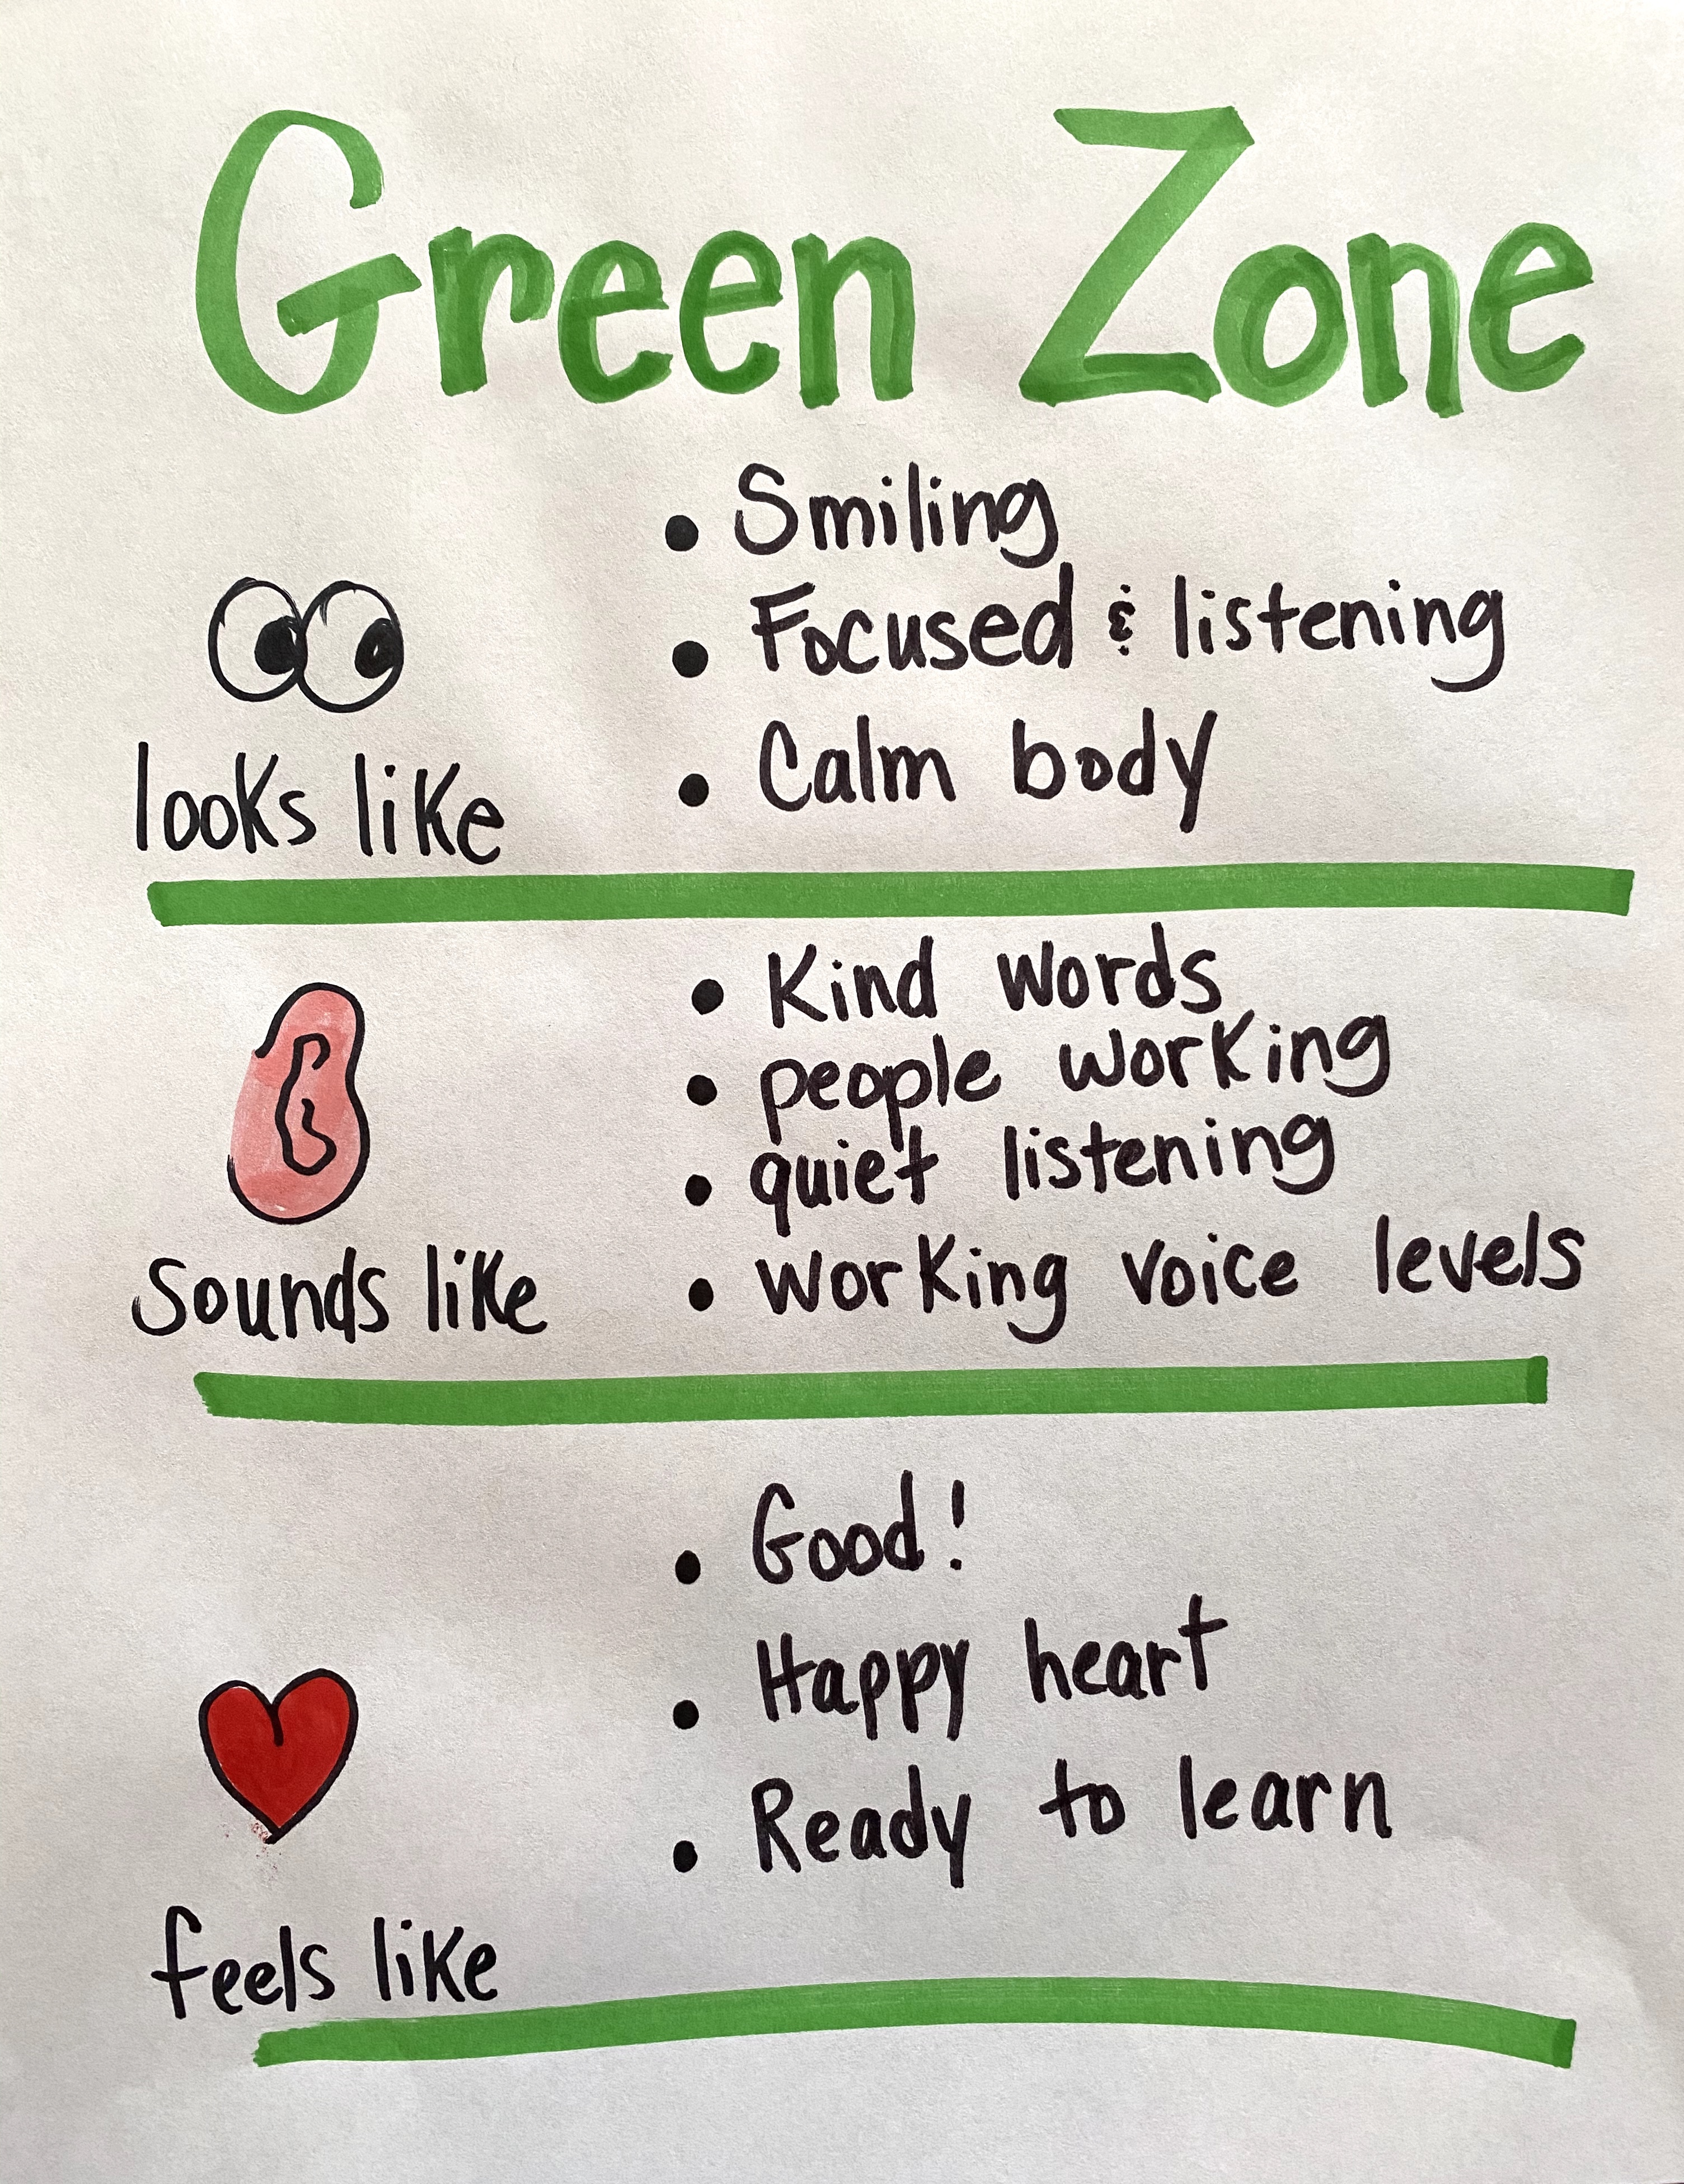 Green Zone
• Smiling
• Focused & listening
• Calm body
looks like
• Kind words
• people working
• quiet listening
• working voice levels
Sounds like
• Good!
• Happy heart
• Ready to learn
feels like